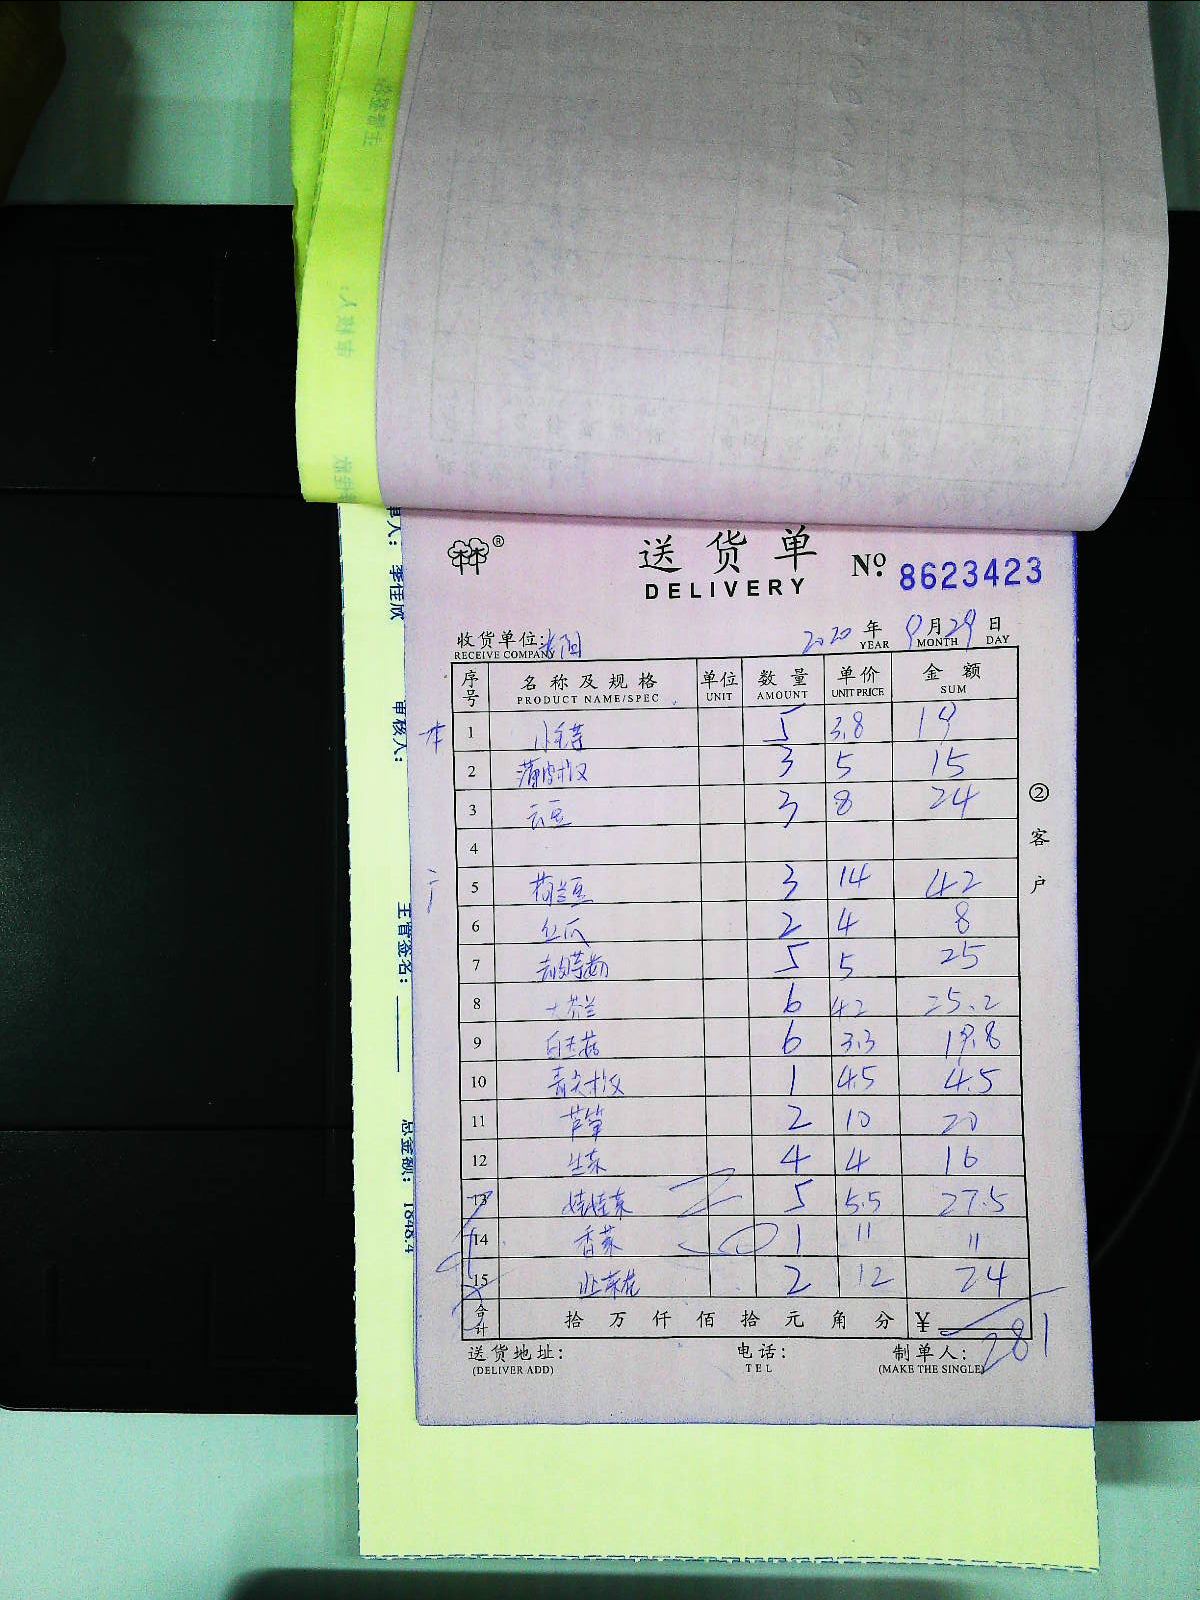 送货单 No. 8623423
DELIVERY
收货单位: 2020年 9月 29日
RECEIVE COMPANY YEAR MONTH DAY
序号 名称及规格 单位 数量 单价 金额
PRODUCT NAME/SPEC UNIT AMOUNT UNIT PRICE SUM
1 5 3.8 19
2 蒲皮 3 5 15
3 云豆 3 8 24
4
5 荷兰豆 3 14 42
6 丝瓜 2 4 8
7 5 5 25
8 大芥兰 6 4.2 25.2
9 白玉菇 6 3.3 19.8
10 青尖椒 1 4.5 4.5
11 芦笋 2 10 20
12 生菜 4 4 16
13 娃娃菜 5 5.5 27.5
14 香菜 1 11 11
15 韭菜花 2 12 24
合计 拾万仟佰拾元角分 ¥ 281
送货地址: 电话: 制单人:
(DELIVER ADD) TEL (MAKE THE SINGLE)
②客户
单人: 李佳欣
审核人:
主管签名:
总金额: 1848.4